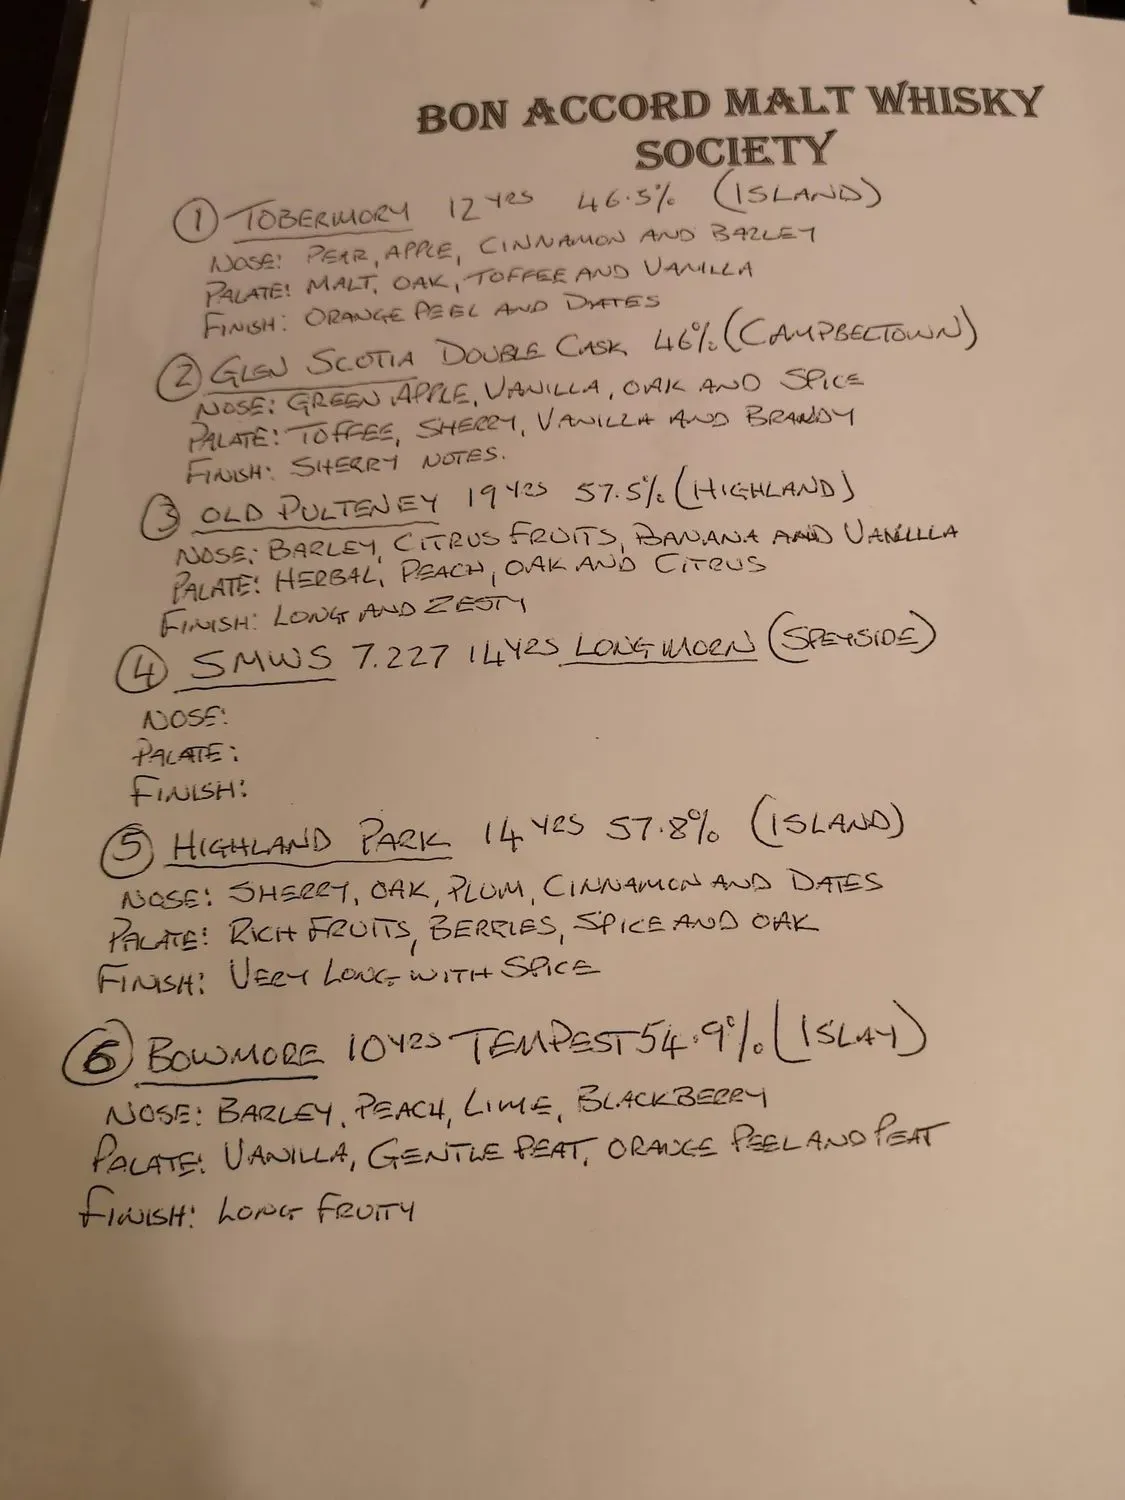 BON ACCORD MALT WHISKY
SOCIETY
① TOBERMORY 12 YRS 46.5% (ISLAND)
NOSE: PEAR, APPLE, CINNAMON AND BARLEY
PALATE: MALT, OAK, TOFFEE AND VANILLA
FINISH: ORANGE PEEL AND DATES
② GLEN SCOTIA DOUBLE CASK 46% (CAMPBELTOWN)
NOSE: GREEN APPLE, VANILLA, OAK AND SPICE
PALATE: TOFFEE, SHERRY, VANILLA AND BRANDY
FINISH: SHERRY NOTES.
③ OLD PULTENEY 19 YRS 57.5% (HIGHLAND)
NOSE: BARLEY, CITRUS FRUITS, BANANA AND VANILLLA
PALATE: HERBAL, PEACH, OAK AND CITRUS
FINISH: LONG AND ZESTY
④ SMWS 7.227 14 YRS LONGMORN (SPEYSIDE)
NOSE:
PALATE:
FINISH:
⑤ HIGHLAND PARK 14 YRS 57.8% (ISLAND)
NOSE: SHERRY, OAK, PLUM, CINNAMON AND DATES
PALATE: RICH FRUITS, BERRIES, SPICE AND OAK
FINISH: VERY LONG WITH SPICE
⑥ BOWMORE 10 YRS TEMPEST 54.9% (ISLAY)
NOSE: BARLEY, PEACH, LIME, BLACKBERRY
PALATE: VANILLA, GENTLE PEAT, ORANGE PEEL AND PEAT
FINISH: LONG FRUITY